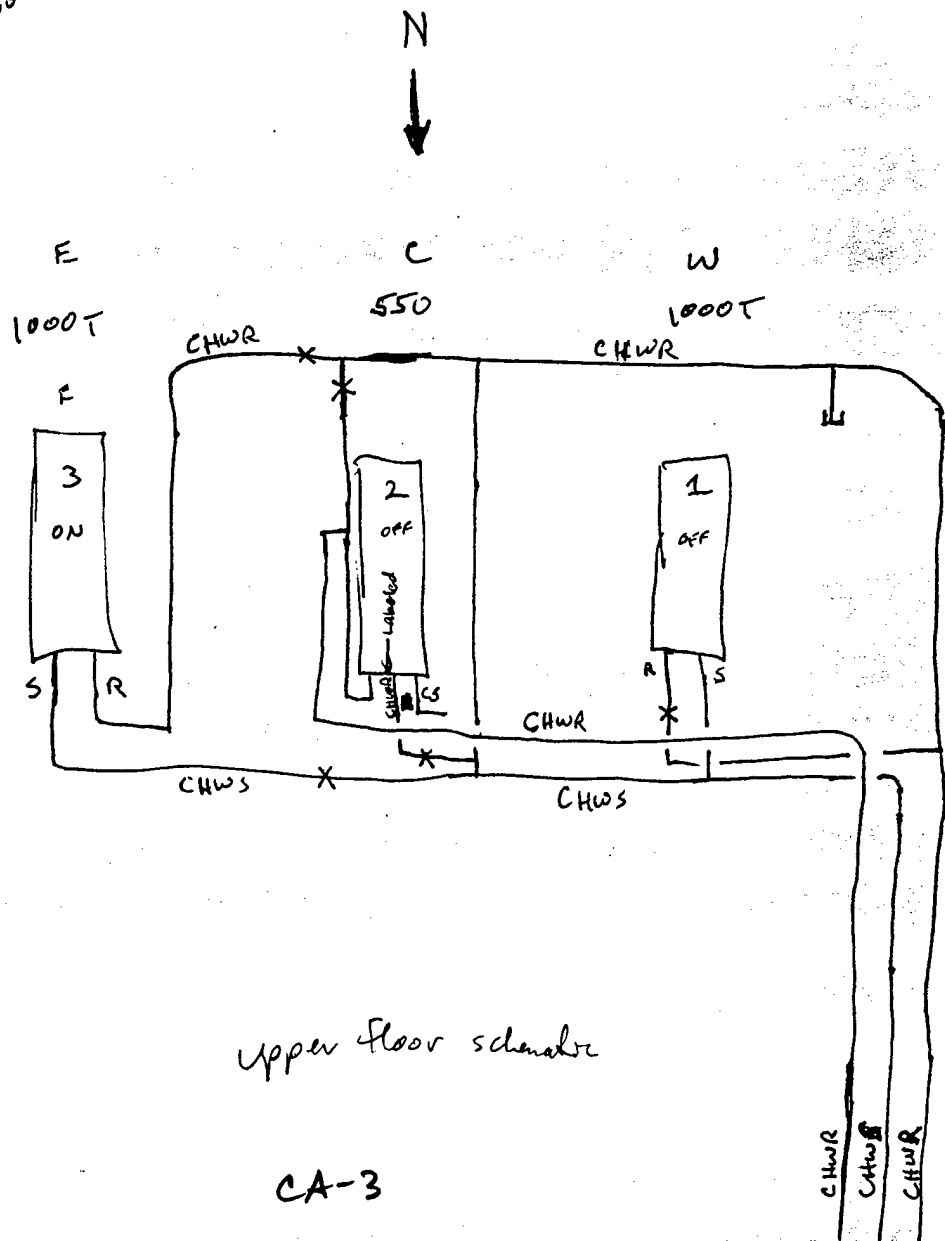 N
E
C
W
1000T
550
1000T
CHWR
CHWR
3
ON
2
OFF
1
OFF
Labeled
S
R
CS
R
S
CHWR
CHWS
CHWS
upper floor schematic
CA-3
CHWR
CHWS
CHWR